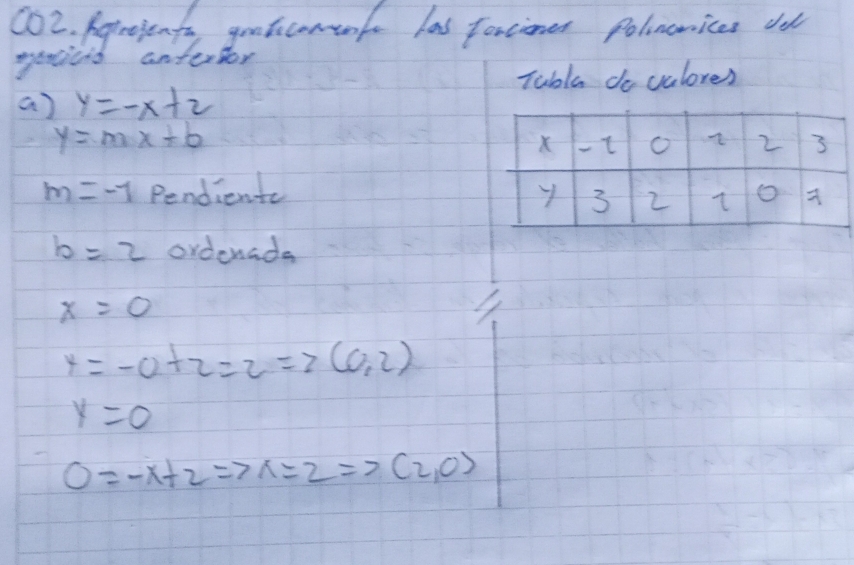 CO2. Representa graficamente las funciones Polinomices del
ejercicio anterior
a) y=-x+2
y=mx+b
m=-1 Pendiente
b=2 ordenada
x=0
y=-0+2=2=>(0,2)
y=0
0=-x+2=>x=2=>(2,0)
Tabla de valores
x -1 0 1 2 3
y 3 2 1 0 1